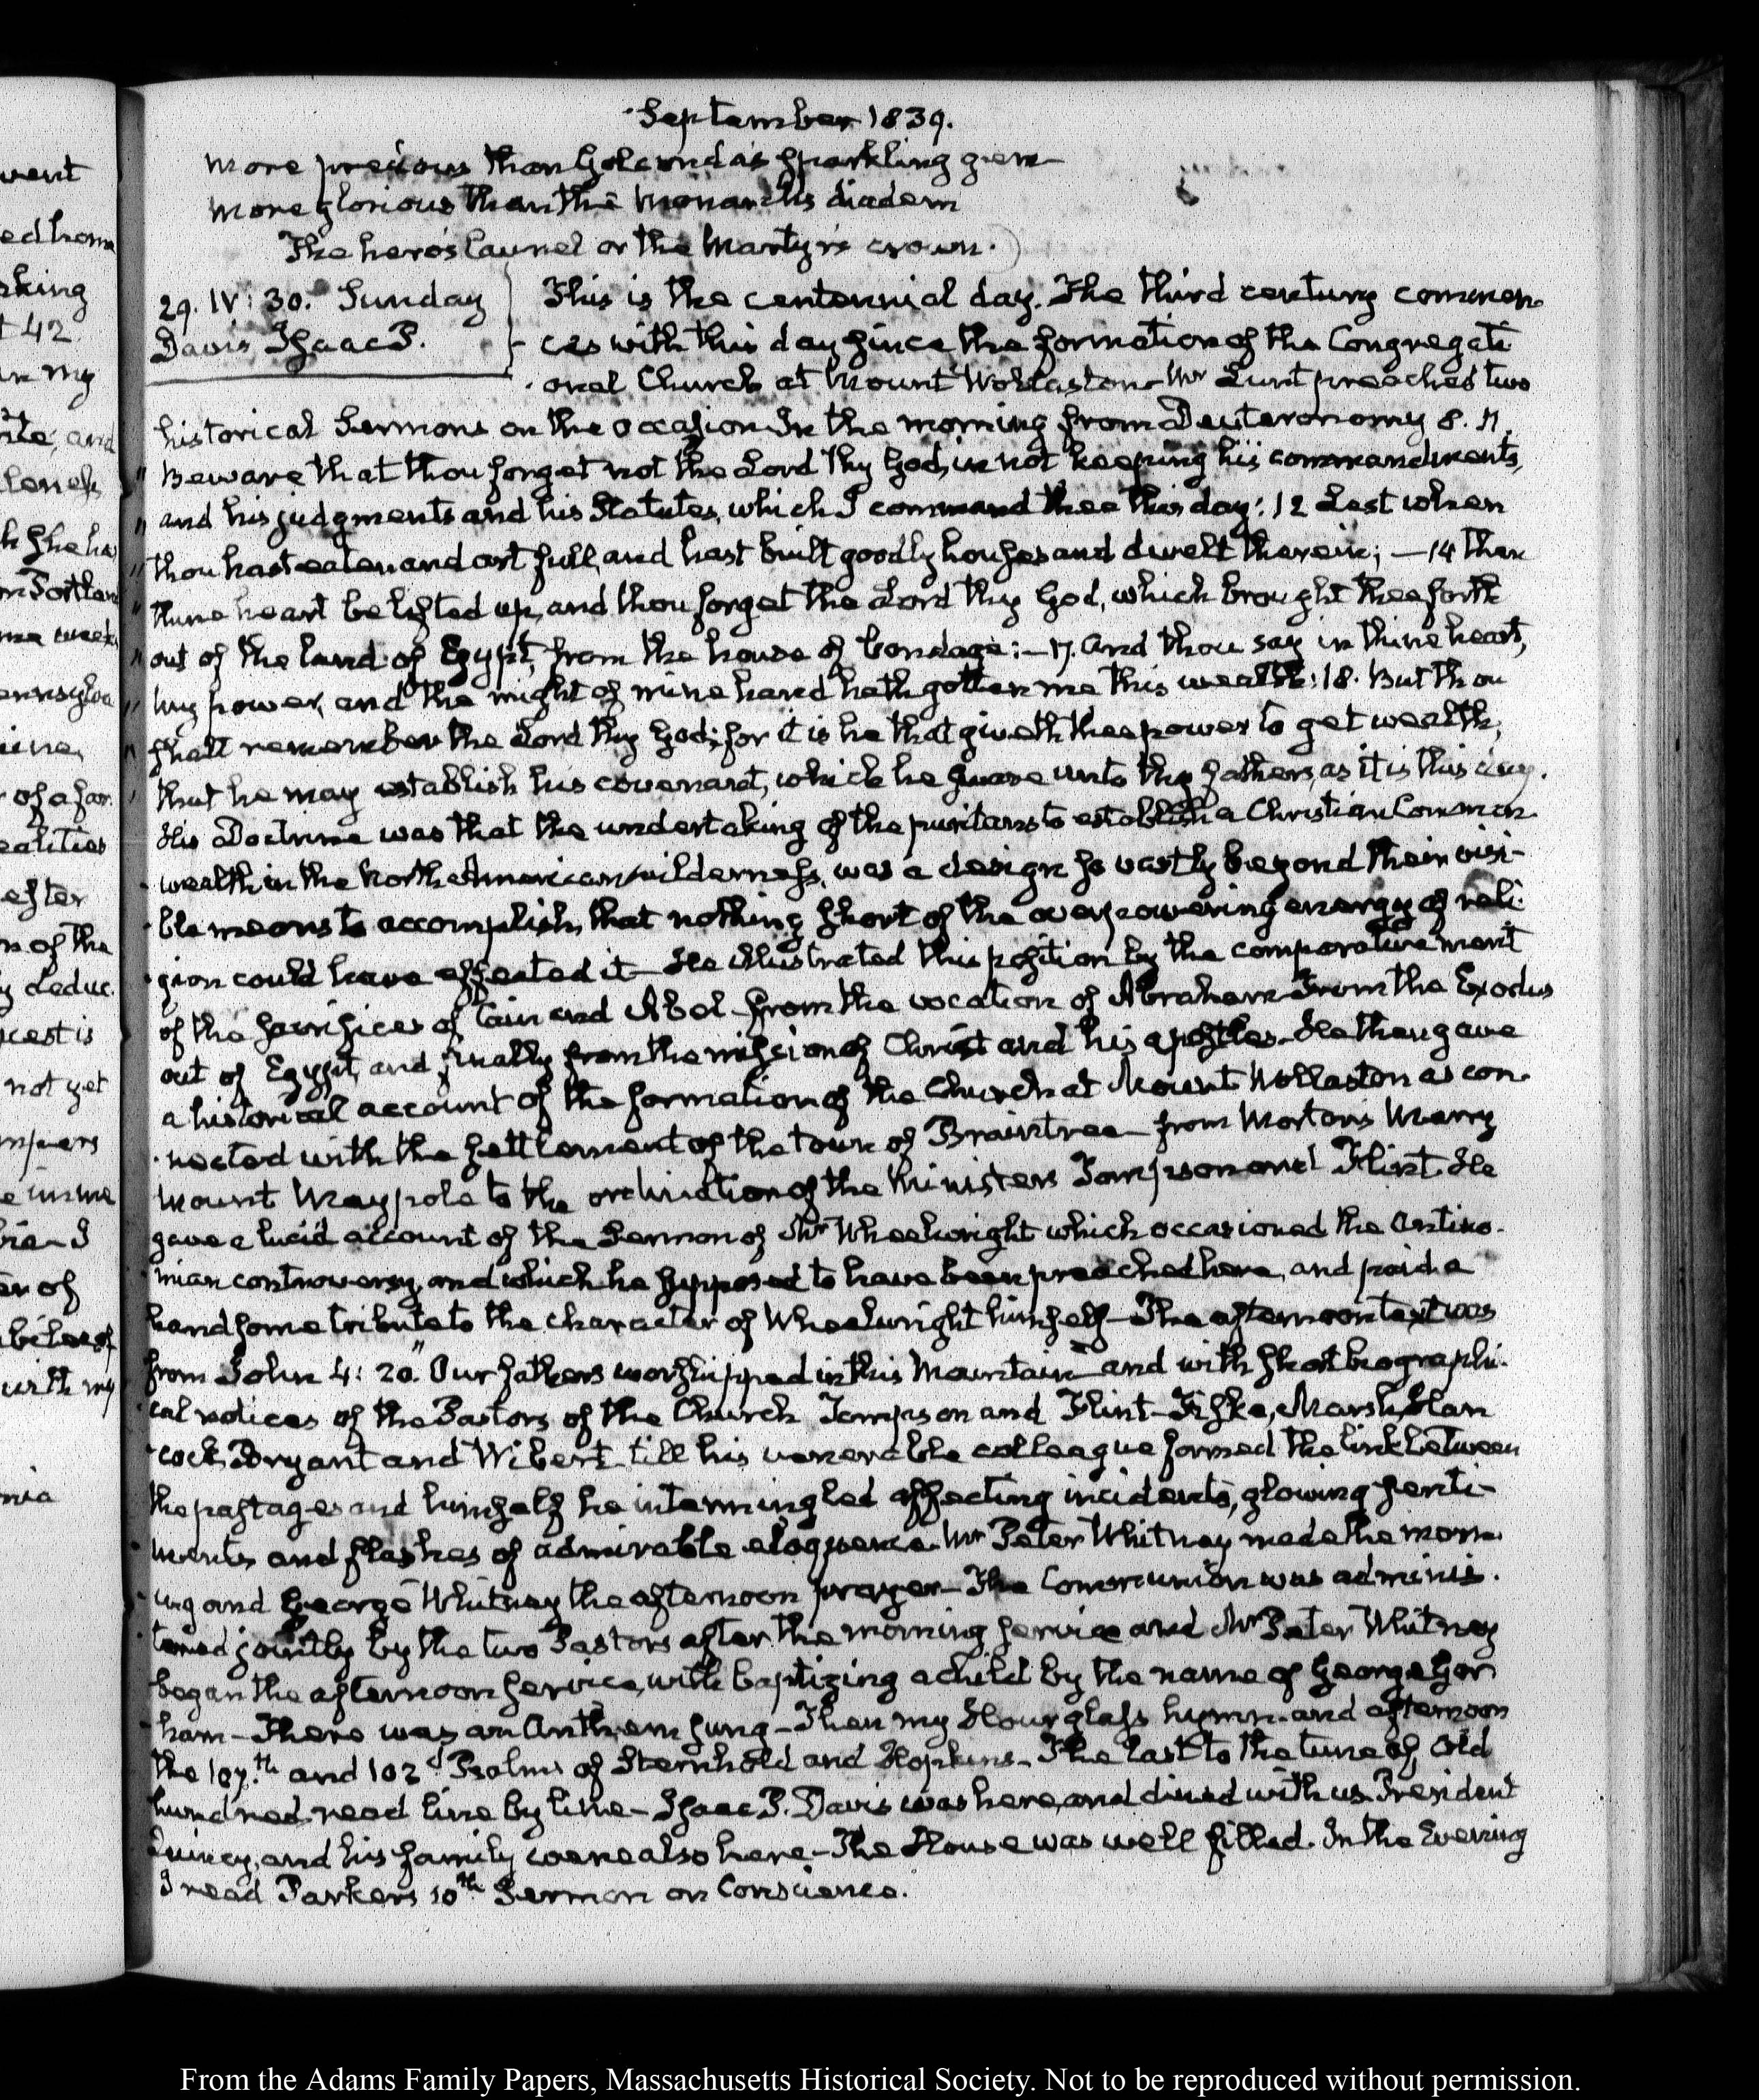 September 1839.
more precious than Golconda's sparkling gem
more glorious than the Monarch's diadem
The hero's laurel or the Martyr's crown.
29. IV: 30. Sunday
Davis Isaac P.
This is the centennial day. The third century commen
ces with this day since the formation of the Congregati
onal Church at Mount Wollaston— Mr Lunt preached two
historical Sermons on the occasion In the morning from Deuteronomy 8. 11.
" Beware that thou forget not the Lord thy God, in not keeping his commandments,
" and his judgments and his Statutes, which I command thee this day: 12 Lest when
" thou hast eaten and art full, and hast built goodly houses and dwelt therein; — 14 Then
" thine heart be lifted up, and thou forget the Lord thy God, which brought thee forth
" out of the land of Egypt, from the house of bondage: — 17. And thou say in thine heart,
" my power, and the might of mine hand hath gotten me this wealth: 18. But thou
" shalt remember the Lord thy God; for it is he that giveth thee power to get wealth,
" that he may establish his covenant, which he sware unto thy fathers, as it is this day.
His Doctrine was that the undertaking of the puritans to establish a Christian Common
wealth in the North American wilderness, was a design so vastly beyond their visi-
ble means to accomplish, that nothing short of the overpowering energy of reli
gion could have effected it— He illustrated this position by the comparative merit
of the sacrifices of Cain and Abel— from the vocation of Abraham— From the Exodus
out of Egypt, and finally from the mission of Christ and his apostles— He then gave
a historical account of the formation of the Church at Mount Wollaston as con
nected with the settlement of the town of Braintree— from Morton's Merry
Mount Maypole to the ordination of the Ministers Tompson and Flint. He
gave a lucid account of the Sermon of Mr Wheelwright which occasioned the Antino-
mian controversy, and which he supposed to have been preached here, and paid a
handsome tribute to the character of Wheelwright himself— The afternoon text was
from John 4: 20. "Our fathers worshipped in this Mountain— and with short biographi-
cal notices of the Pastors of the Church Tompson and Flint— Fiske, Marsh, Han
cock, Bryant and Wibert till his venerable colleague formed the link between
the past ages and himself he intermingled affecting incidents, glowing senti-
ments and flashes of admirable eloquence. Mr Peter Whitney made the morn
ing and George Whitney the afternoon prayer— The Communion was adminis
tered jointly by the two Pastors after the morning service and Mr Peter Whitney
began the afternoon service, with baptizing a child by the name of George Gor
ham— There was an Anthem sung— Then my Hour glass hymn. and afternoon
the 107.th and 102d Psalms of Sternhold and Hopkins— The last to the tune of Old
hundred read line by line— Isaac P. Davis was here, and dined with us. President
Quincy, and his family were also here— The House was well filled. In the Evening
I read Parkers 10th Sermon on Conscience.
From the Adams Family Papers, Massachusetts Historical Society. Not to be reproduced without permission.